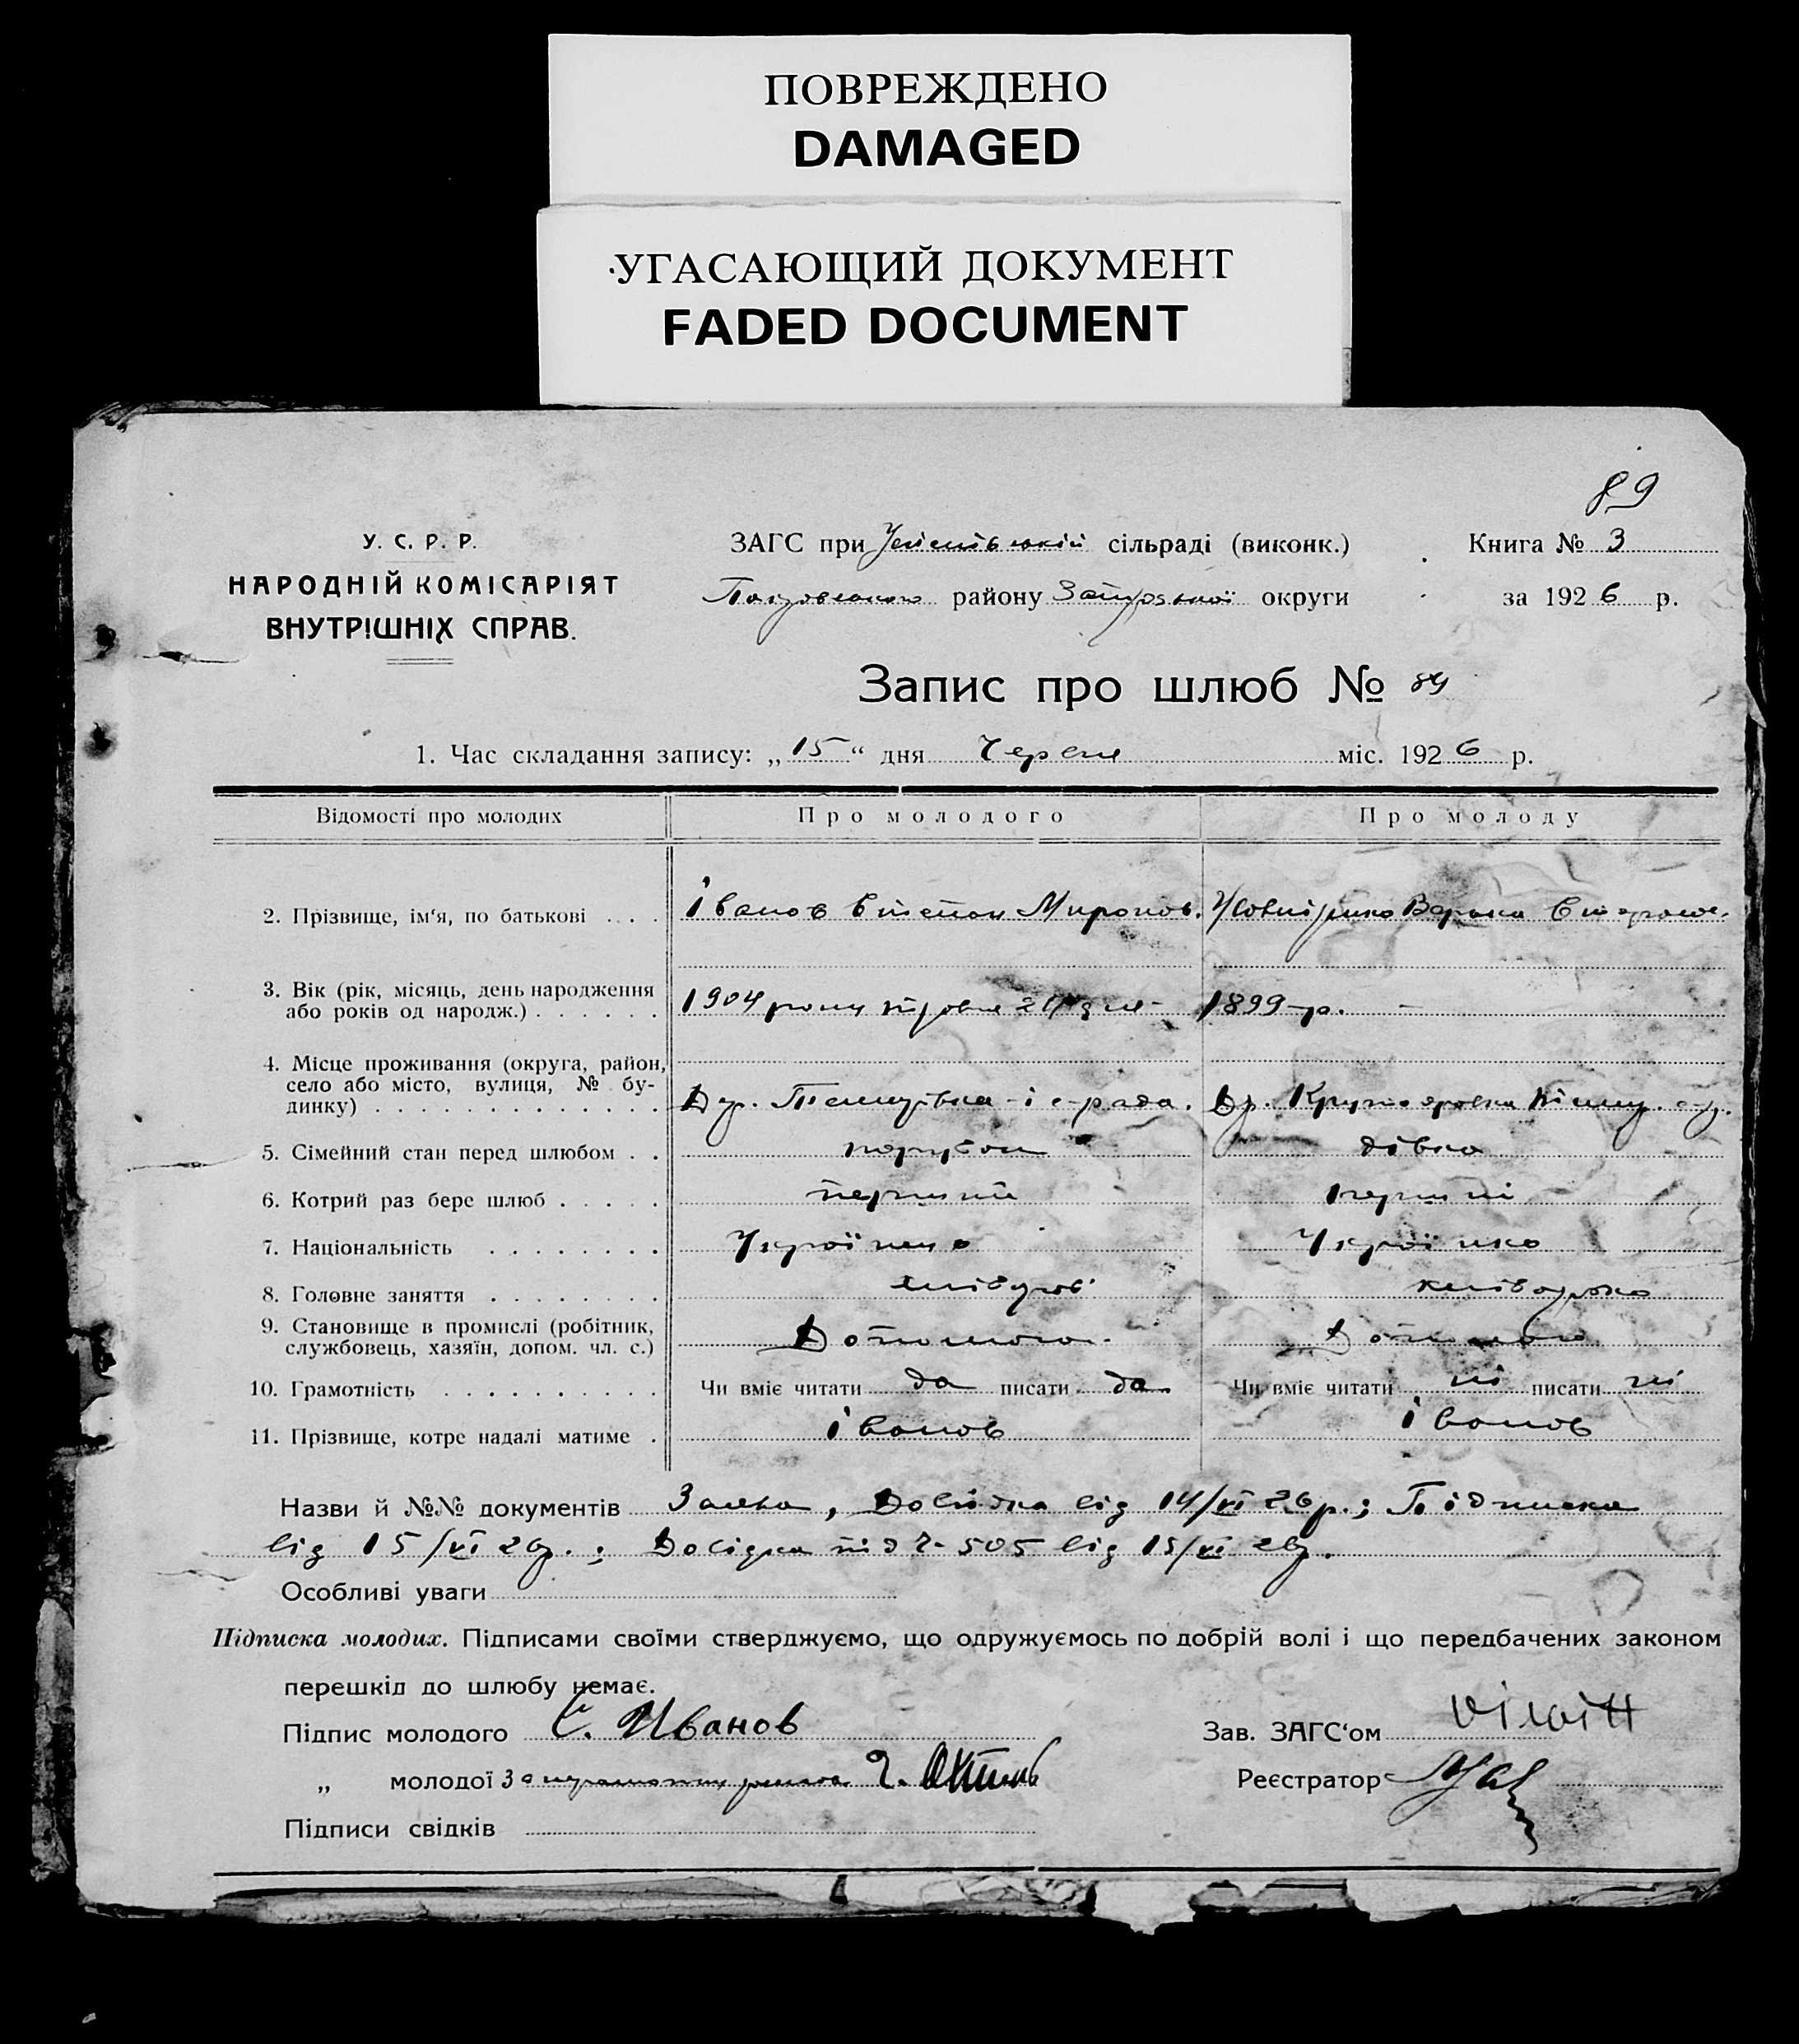 ПОВРЕЖДЕНО
DAMAGED
УГАСАЮЩИЙ ДОКУМЕНТ
FADED DOCUMENT
89
У. С. Р. Р.
НАРОДНІЙ КОМІСАРІЯТ
ВНУТРІШНІХ СПРАВ.
ЗАГС при сільраді (виконк.)
району округи
Книга № 3
за 1926 р.
Запис про шлюб № 89
1. Час складання запису: „15“ дня Червня міс. 1926 р.
Відомості про молодих Про молодого Про молоду
2. Прізвище, ім‘я, по батькові . . . Іванов Степан Миронов.
3. Вік (рік, місяць, день народження
або років од народж.) . . . . . . 1904 року травня дня 1899 р.
4. Місце проживання (округа, район,
село або місто, вулиця, № бу-
динку) . . . . . . . . . . . . . . с-рада.
5. Сімейний стан перед шлюбом . . парубок дівка
6. Котрий раз бере шлюб . . . . . перший перший
7. Національність . . . . . . . . Українець Українка
8. Головне заняття . . . . . . . . хлібороб хліборобка
9. Становище в промислі (робітник,
службовець, хазяїн, допом. чл. с.)
10. Грамотність . . . . . . . . . . Чи вміє читати да писати да Чи вміє читати ні писати ні
11. Прізвище, котре надалі матиме . Іванов Іванов
Назви й №№ документів Заява, Довідка від 14/VI 26 р.; Підписка
від 15/VI 26 р.; Довідка під ч. 505 від 15/VI 26 р.
Особливі уваги
Підписка молодих. Підписами своїми стверджуємо, що одружуємось по добрій волі і що передбачених законом
перешкід до шлюбу немає.
Підпис молодого С. Иванов
Зав. ЗАГС‘ом
„ молодої За неграмотну
Реєстратор
Підписи свідків